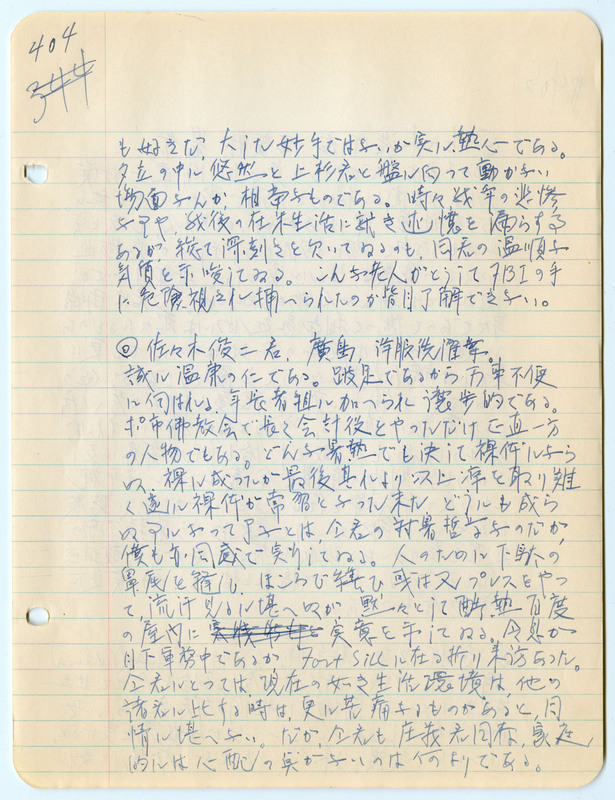 404
も好きだ, 大した妙手ではナいが実ニ熱心である。
夕立の中ニ悠然と上杉君と盤ニ向って動かナい
場面ナんか相当ナものである。時々戦争の悲惨
ナ, 戦後の在米生活に就き述懐を漏らする
あるが, 総て深刻さを欠いてゐるのも, 同君の温順ナ
気質を示唆してゐる。こんナ老人がどうしてFBIの手
に危険視され捕へられたのか皆目了解できナい。
◎ 佐々木俊二君, 廣島, 洋服洗濯業。
誠ニ温東の仁である。跛足であるから万事不便
に伺はれる, 年長者組ニ加へられ譲歩的である。
ポ市佛教会で長く会計役をやっただけ正直一方
の人物でもある。どんナ暑熱でも決して裸体ニナら
ぬ, 裸ニ成ったが最後其れより以上凉を取り難
く, 遂ニ裸体が常習とナった末だ どうにも成ら
ぬアルナって了ふとは, 仝君の対暑哲学ナのだが,
僕も亦同感で実行してゐる。人のために下駄の
鼻底を, ほころび縫ひ或は又プレスをやっ
て, 流汗見るニ堪へぬが, 黙々として酷熱百度
の屋内に 実意を示してゐる。令息が
目下軍務中であるが, Fort Sillに在る折り来訪あった。
仝君ニとっては, 現在の如き生活環境は, 他の
諸君ニ比する時は, 更ニ苦痛ナるものがあると, 同
情ニ堪へナい。だが, 仝君も庄義君同様, 家庭
的ニは心配の実がナいのは何よりである。